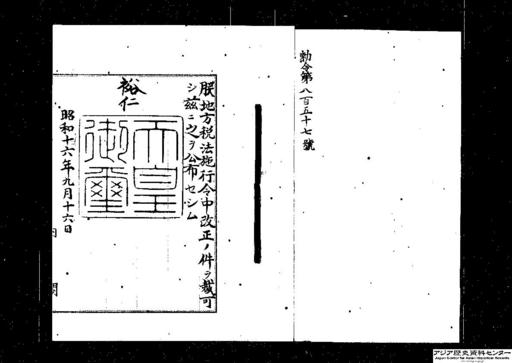 勅令第八百五十七號
朕地方税法施行令中改正ノ件ヲ裁可
シ茲ニ之ヲ公布セシム
裕仁
天皇御璽
昭和十六年九月十六日
内閣
アジア歴史資料センター
Japan Center for Asian Historical Records